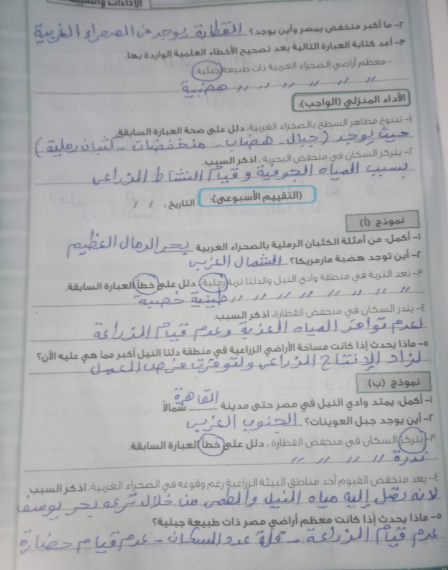 ٢- ما أكبر منخفض بمصر وأين يوجد؟ القطارة يوجد في الصحراء الغربية
٣- أعد كتابة العبارة التالية بعد تصحيح الأخطاء العلمية الواردة بها.
- معظم أراضي الصحراء الغربية ذات طبيعة جبلية
〃 〃 〃 〃 〃 〃 هضبية
الأداء المنزلي (الواجب):
١- تتنوع مظاهر السطح بالصحراء الغربية، دلل على صحة العبارة السابقة.
حيث يوجد (جبال - هضاب - منخفضات - كثبان رملية)
٢- يتركز السكان في منخفض البحرية، اذكر السبب.
بسبب المياه الجوفية وقيام النشاط الزراعى
(التقييم الأسبوعي): التاريخ: / /
نموذج (أ)
١- أكمل: من أمثلة الكثبان الرملية بالصحراء الغربية بحر الرمال العظيم
٢- أين توجد هضبة مارمريكا؟ الشمال الغربى
٣- تعد التربة في منطقة وادي النيل والدلتا تربة رملية، دلل على خطأ العبارة السابقة.
〃 〃 〃 〃 〃 〃 〃 طينية خصبة
٤- يندر السكان في منخفض القطارة، اذكر السبب.
لعدم توافر المياه العذبة وعدم قيام الزراعة
٥- ماذا يحدث إذا كانت مساحة الأراضي الزراعية في منطقة دلتا النيل أكبر مما هي عليه الآن؟
لزاد الإنتاج الزراعى ولتوفرت فرص العمل
نموذج (ب)
١- أكمل: يمتد وادي النيل في مصر حتى مدينة القاهرة شمالًا
٢- أين يوجد جبل العوينات؟ الجنوب الغربى
٣- يتركز السكان في منخفض القطارة، دلل على خطأ العبارة السابقة.
ندرة 〃 〃 〃 〃
٤- يعد منخفض الفيوم أحد مناطق البيئة الزراعية رغم وقوعه في الصحراء الغربية، اذكر السبب.
لانه تصل إليه مياه النيل والطمى من خلال ترعة بحر يوسف
٥- ماذا يحدث إذا كانت معظم أراضي مصر ذات طبيعة جبلية؟
عدم قيام الزراعة - قلة عدد السكان - عدم قيام حضارة